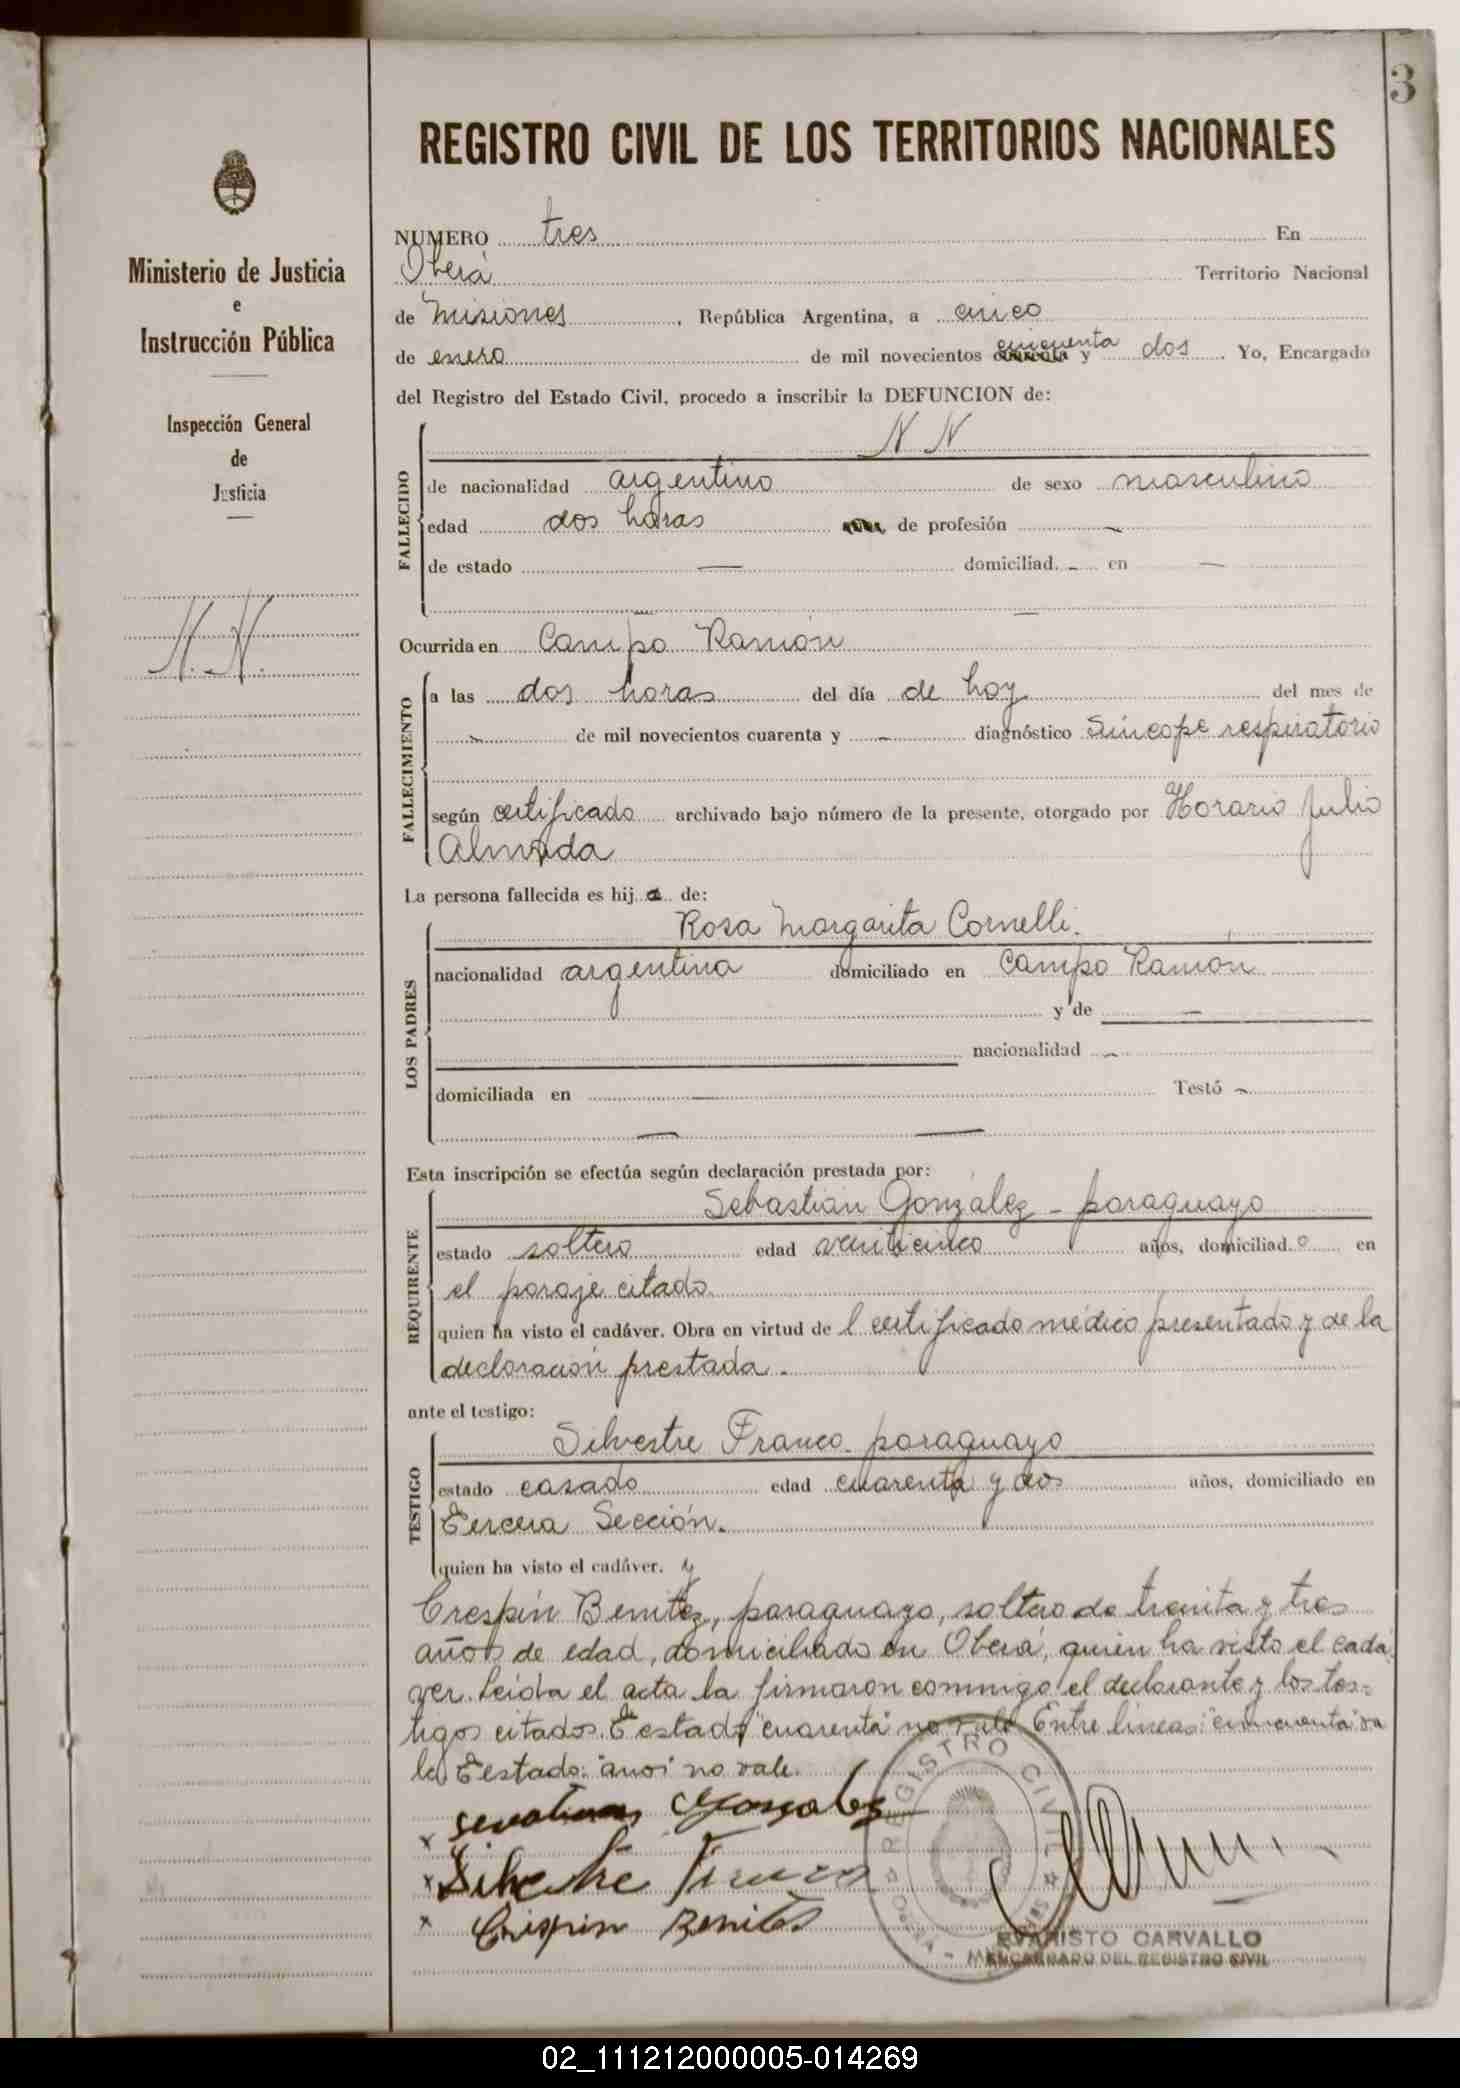 3
REGISTRO CIVIL DE LOS TERRITORIOS NACIONALES
Ministerio de Justicia
e
Instrucción Pública
Inspección General
de
Justicia
N. N.
NUMERO tres En
Oberá Territorio Nacional
de Misiones, República Argentina, a cinco
de enero de mil novecientos cincuenta y dos. Yo, Encargado
del Registro del Estado Civil, procedo a inscribir la DEFUNCION de:
FALLECIDO
N N
de nacionalidad argentino de sexo masculino
edad dos horas de profesión —
de estado — domiciliad. - en —
— —
Ocurrida en Campo Ramón
FALLECIMIENTO
a las dos horas del día de hoy del mes de
- de mil novecientos cuarenta y - diagnóstico Síncope respiratorio
según certificado archivado bajo número de la presente, otorgado por Horacio Julio
Almeida
La persona fallecida es hij o de:
LOS PADRES
Rosa Margarita Cornelli.
nacionalidad argentina domiciliado en Campo Ramón
y de —
nacionalidad —
domiciliada en — Testó -
— —
Esta inscripción se efectúa según declaración prestada por:
REQUIRENTE
Sebastián González - paraguayo
estado soltero edad veinticinco años, domiciliad o en
el paraje citado
quien ha visto el cadáver. Obra en virtud de l certificado médico presentado y de la
declaración prestada.
ante el testigo:
TESTIGO
Silvestre Franco. paraguayo
estado casado edad cuarenta y dos años, domiciliado en
Tercera Sección.
quien ha visto el cadáver. y
Crespín Benitez, paraguayo, soltero de treinta y tres
años de edad, domiciliado en Oberá, quien ha visto el cadá
ver. Leída el acta la firmaron conmigo el declarante y los tes-
tigos citados. Testado "cuarenta" no vale. Entre líneas: "cincuenta" va
le. Testado: "anos" no vale.
x Gonzalez
x Silvestre Franco
x Crispin Benites
REGISTRO CIVIL
EVARISTO CARVALLO
ENCARGADO DEL REGISTRO CIVIL
02_111212000005-014269